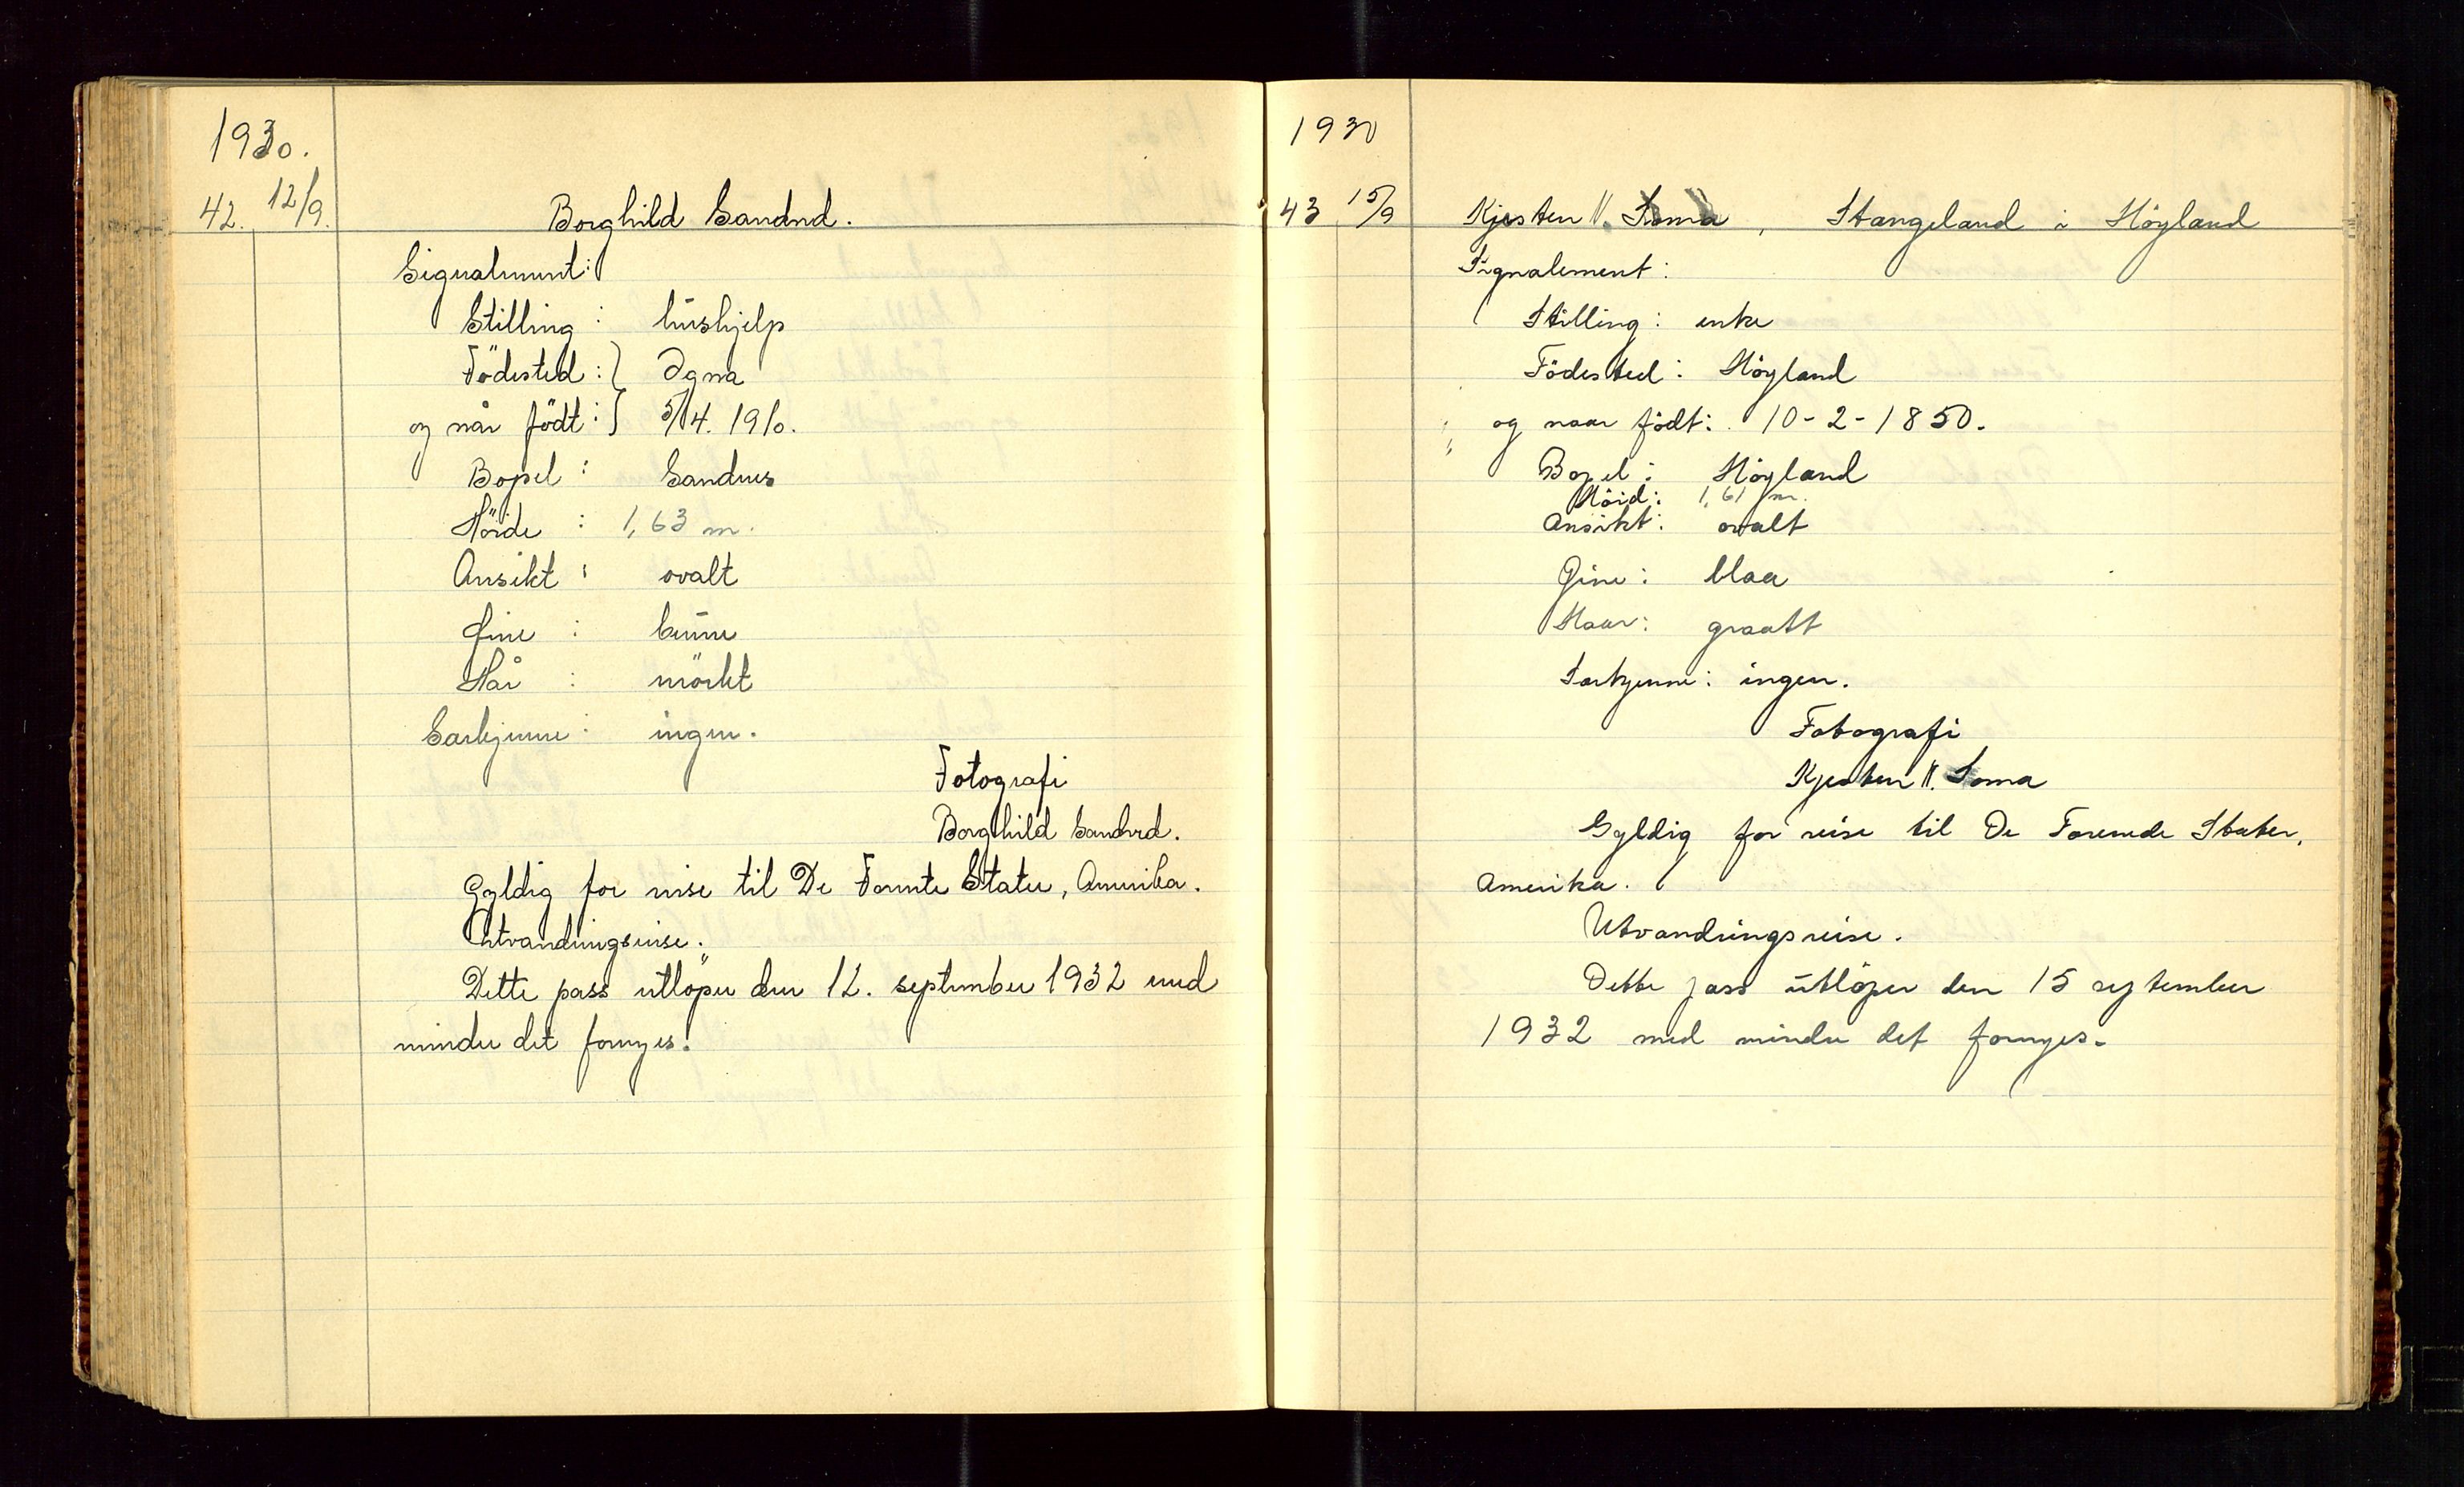 1930.
42. 12/9. Borghild Sandnd.
Signalement:
Stilling : hushjelp
Födested : } Ogna
og når födt : } 5/4. 1910.
Bopel : Sandnes
Höide : 1,63 m.
Ansikt : ovalt
Øine : brune
Hår : mörkt
Særkjenne : ingen.
Fotografi
Borghild Sandvd.
Gyldig for reise til De Forente Stater, Amerika.
Utvandringsreise.
Dette pass utlöper den 12. september 1932 med
mindre det fornyes.
1930
43 15/9 Kjesten V. Soma, Stangeland i Höyland
Signalement:
Stilling: enke
Födested: Höyland
og naar födt: 10-2-1850.
Bopel: Höyland
Höid: 1,61 m.
Ansikt: ovalt
Øine: blaa
Haar: graatt
Særkjenne: ingen.
Fotografi
Kjesten V. Soma
Gyldig for reise til De Forenede Stater,
Amerika.
Utvandringsreise.
Dette pass utlöper den 15 september
1932 med mindre det fornyes.